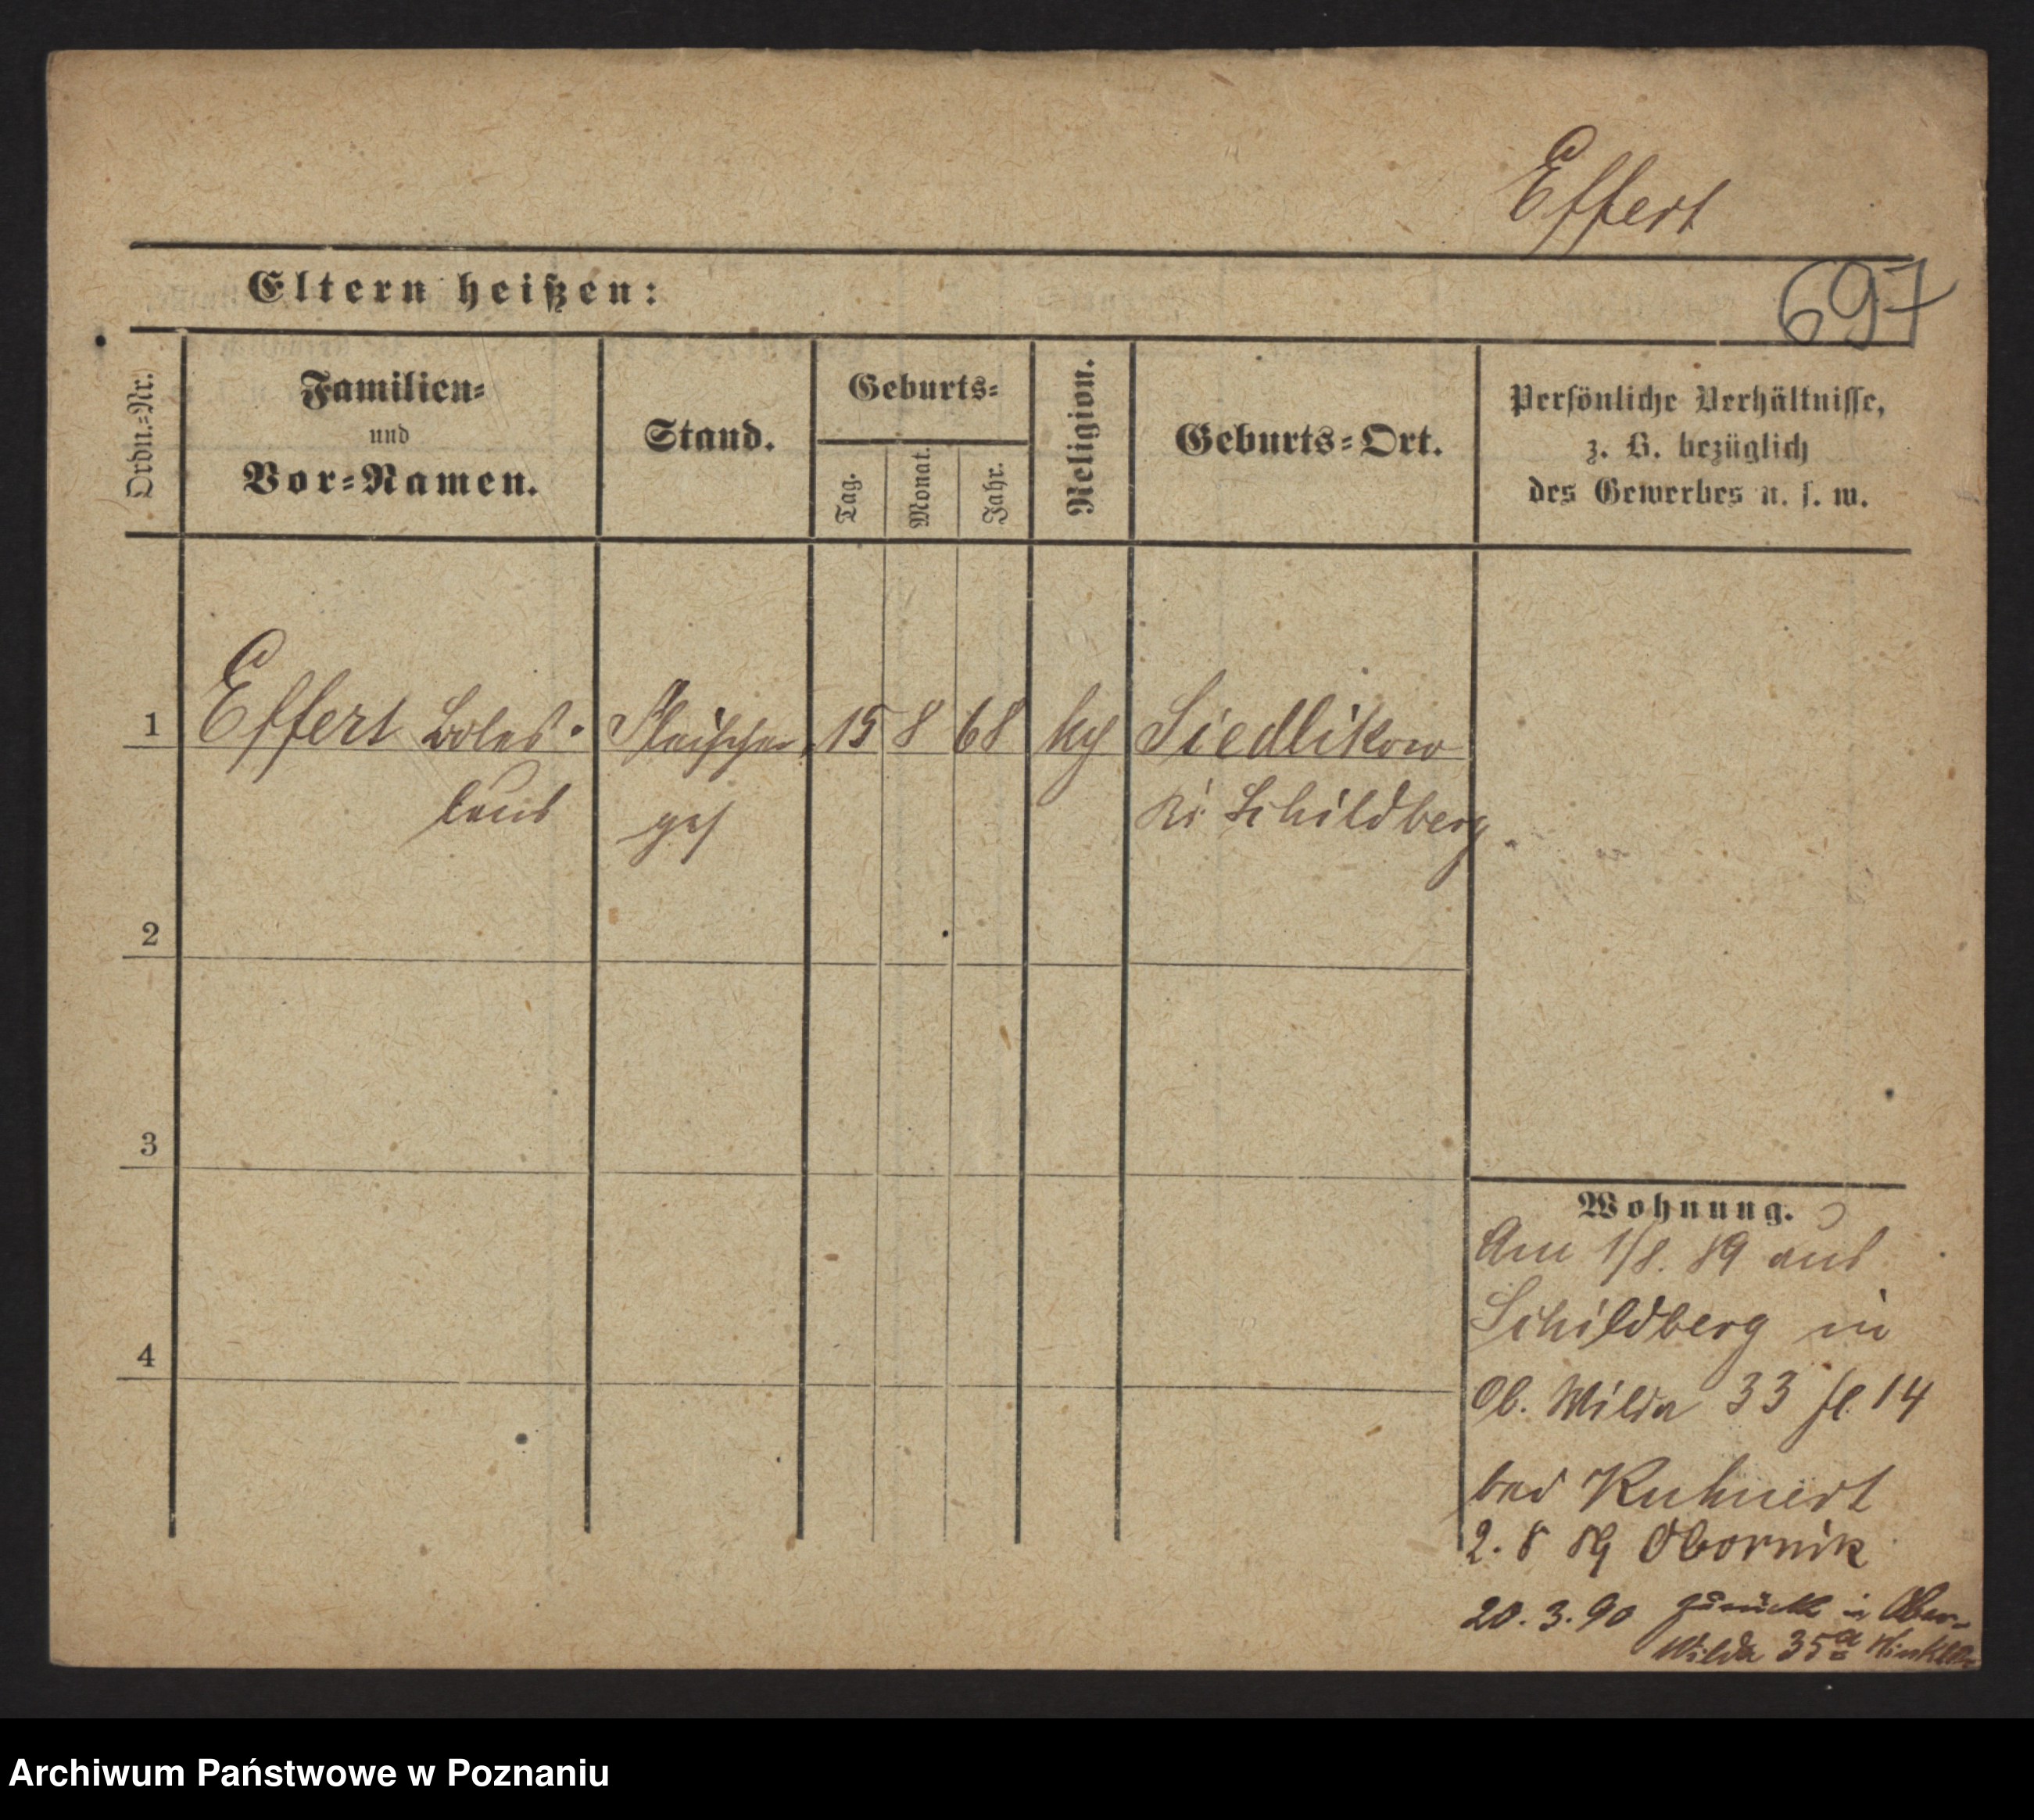 Effert
697
Eltern heißen:
Ordn.-Nr.
Familien-
und
Vor-Namen.
Stand.
Geburts-
Tag.
Monat.
Jahr.
Religion.
Geburts-Ort.
Persönliche Verhältnisse,
z. B. bezüglich
des Gewerbes u. s. w.
1 Effert Boles- Fleischer 15 8 68 kg Siedlikow
laus ges Kr. Schildberg
2
3
4
Wohnung.
Am 1/8. 89 aus
Schildberg in
Ob. Wilda 33 fl. 14
bei Kuhnert
2. 8 89 Obornik
20. 3. 90 zurück in Ober-
Wilda 35a
Archiwum Państwowe w Poznaniu